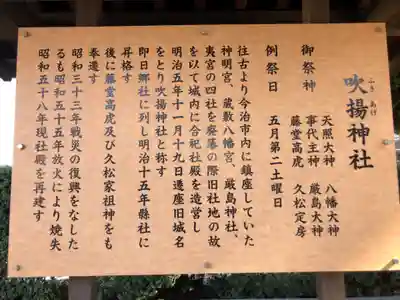 吹揚神社
ふき あげ
御祭神
天照大神 八幡大神
事代主神 厳島大神
藤堂高虎 久松定房
例祭日 五月第二土曜日
往古より今治市内に鎮座していた
神明宮、蔵敷八幡宮、厳島神社、
夷宮の四社を廃藩の際旧社地の故
を以て城内に合祀社殿を造営し
明治五年十一月十九日遷座旧城名
をとり吹揚神社と称す
即日郷社に列し明治十五年縣社に
昇格す
後に藤堂高虎及び久松家祖神をも
奉遷す
昭和三十三年戦災の復興をなした
るも昭和五十五年放火により焼失
昭和五十八年現社殿を再建す